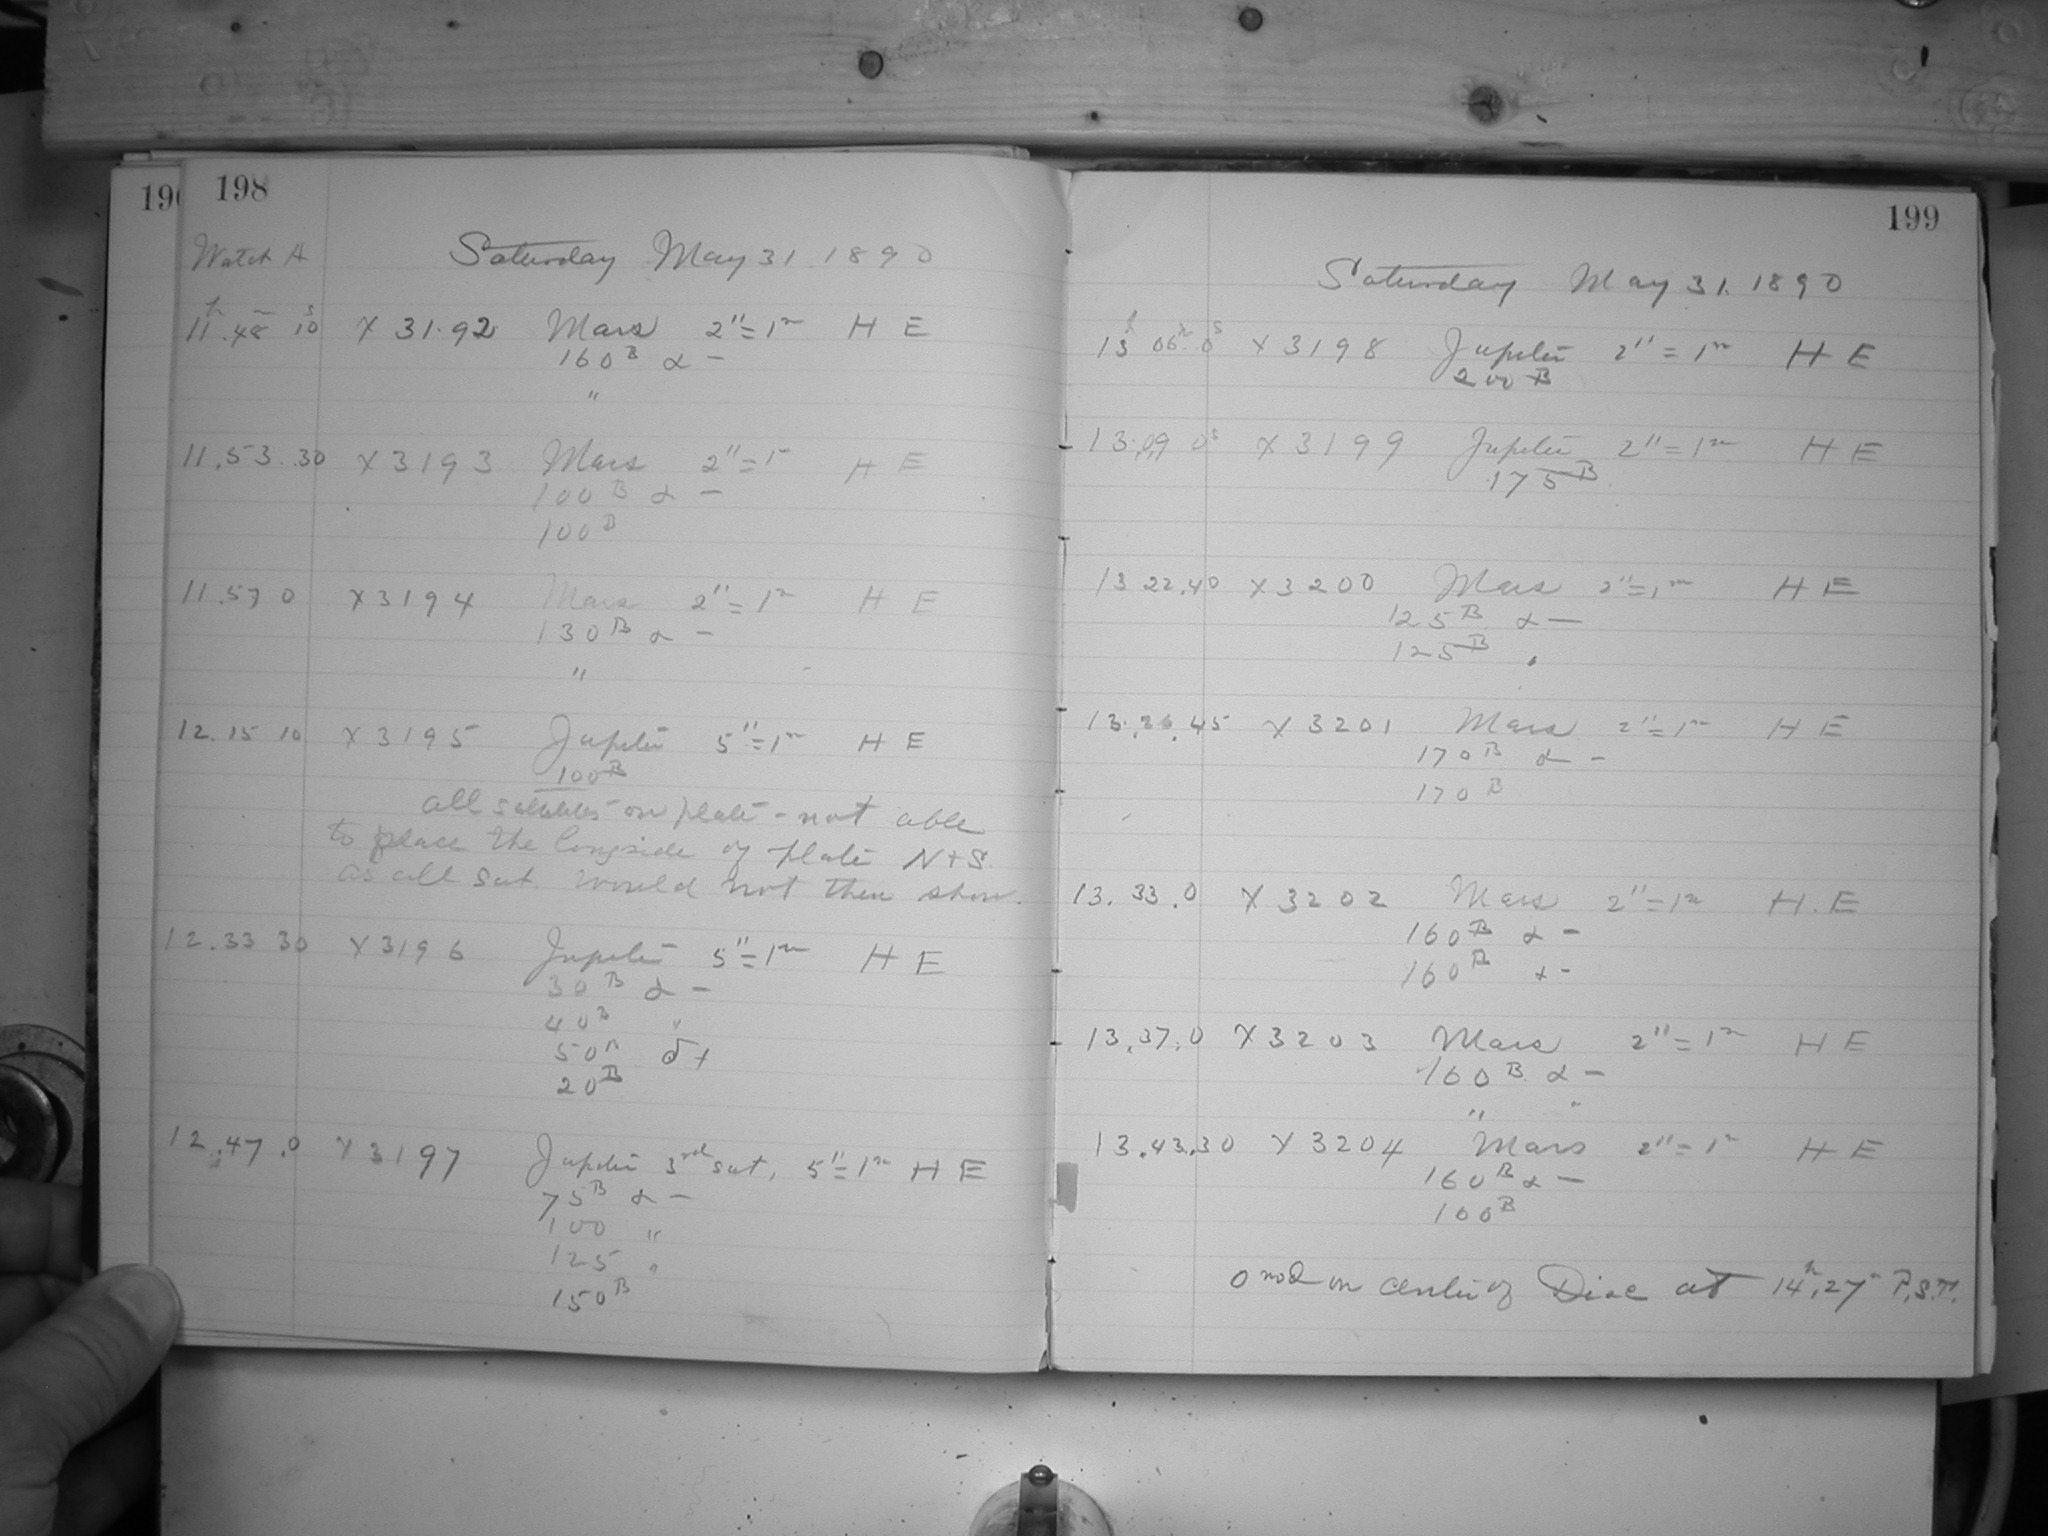 198
Watch A Saturday May 31. 1890
11h.48m 10s X3192 Mars 2"=1m H E
160B α -
"
11.53.30 X3193 Mars 2"=1m H E
100B α -
100B
11.57 0 X3194 Mars 2"=1m H E
130B α -
"
12.15 10 X3195 Jupiter 5"=1m H E
100B
all satellites on plate - not able
to place the longside of plate N+S.
as all sat. would not then show.
12.33 30 X3196 Jupiter 5"=1m H E
30B α -
40B "
50B δ +
20B
12.47.0 X3197 Jupiter 3rd sat, 5"=1m H E
75B α -
100 "
125 "
150B
199
Saturday May 31. 1890
13h 06m 0s X3198 Jupiter 2"=1m H E
200B
13.09 0s X3199 Jupiter 2"=1m H E
175B
13 22.40 X3200 Mars 2"=1m H E
125B α -
125B "
13.26.45 X3201 Mars 2"=1m H E
170B α -
170B
13.33.0 X3202 Mars 2"=1m H.E
160B α -
160B α -
13.37.0 X3203 Mars 2"=1m H E
160B α -
" "
13.43.30 X3204 Mars 2"=1m H E
160B α -
160B
on center of Disc at 14h.27m P.S.T.